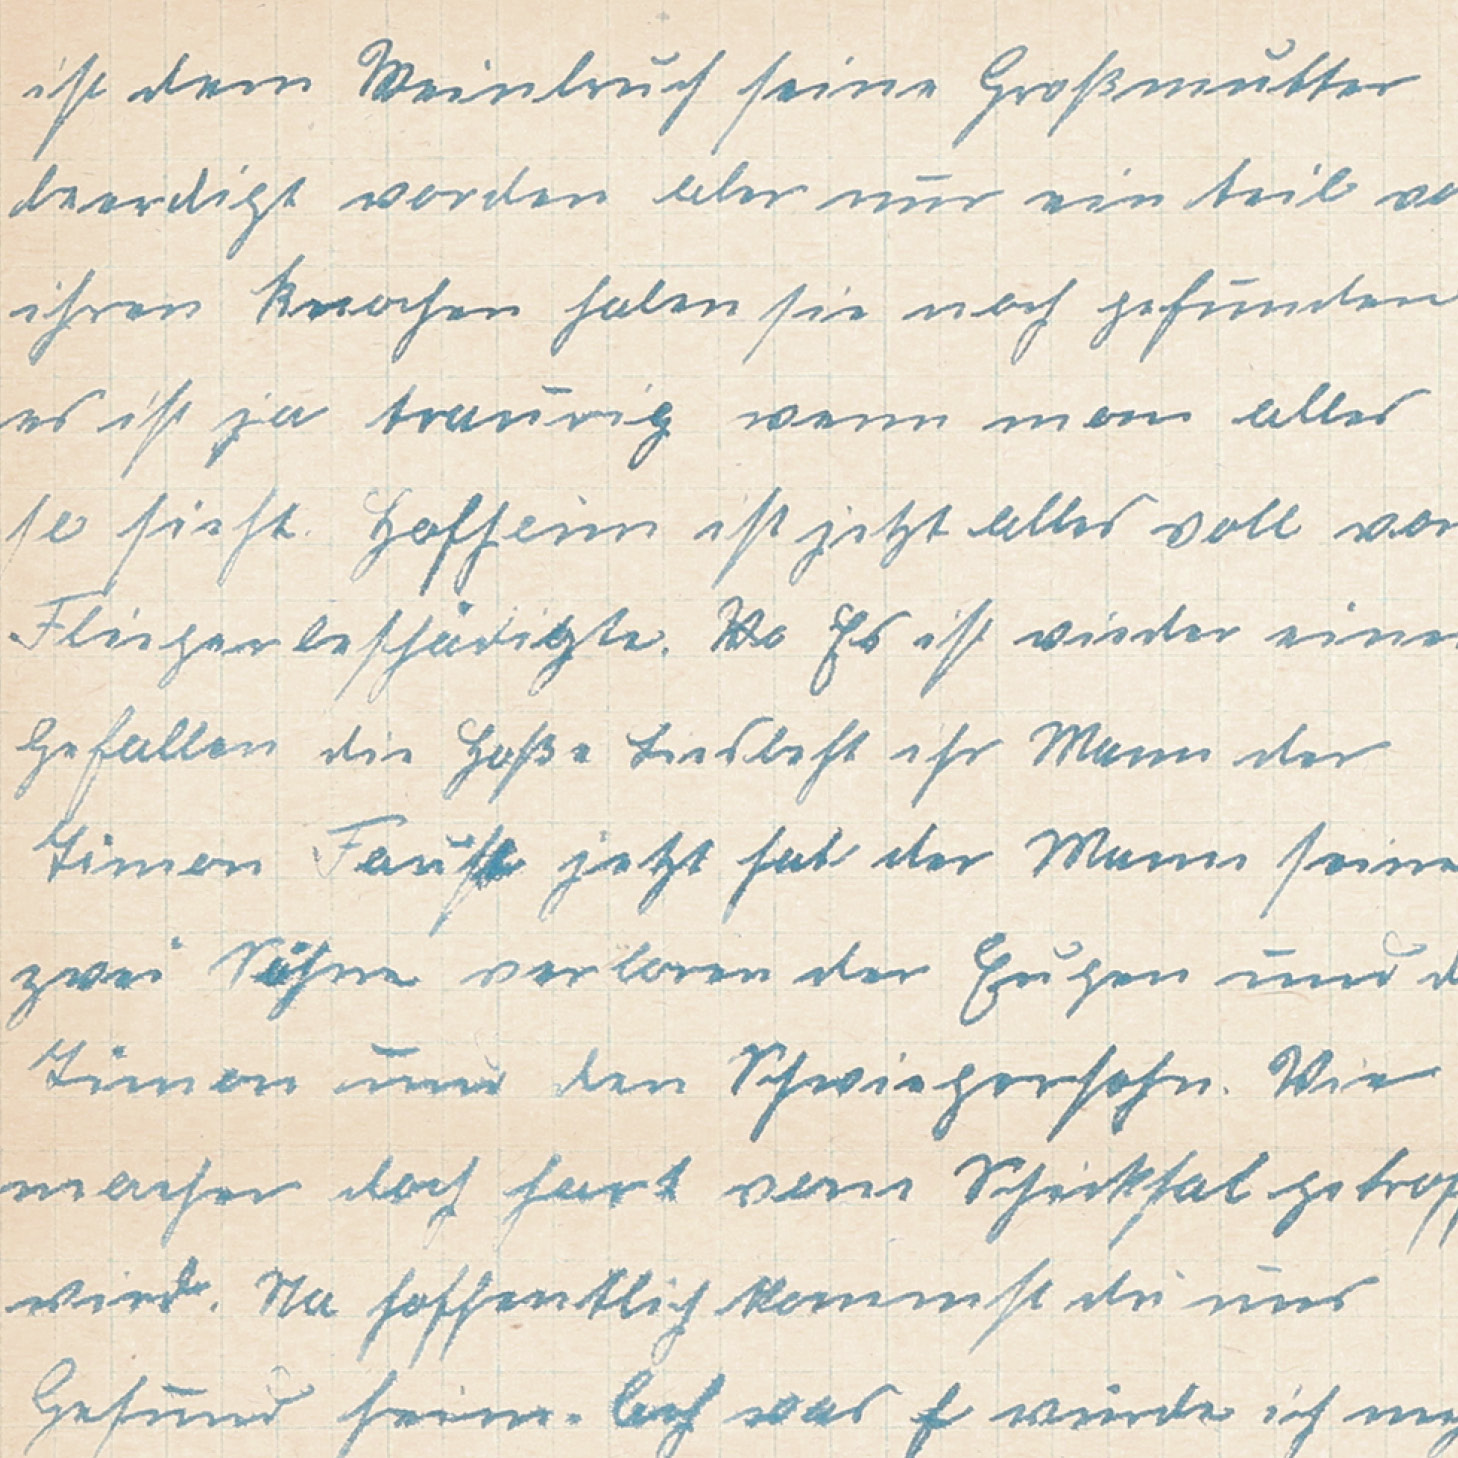 ist dem Weinbruch seine Großmutter
beerdigt worden aber nur ein teil vo
ihren Knochen haben sie noch gefunden
es ist ja traurig wenn man alles
so sieht. Hofheim ist jetzt alles voll von
Fliegerbeschädigte. Wo Es ist wieder einer
Gefallen die ihr Mann der
Simon Faust jetzt hat der Mann seine
zwei Söhne verloren der Eugen und d
Simon und den Schwiegersohn. Wie
mancher doch hart vom Schicksal getroff
wird. Na hoffentlich kommst du uns
Gesund heim. Ach was würde ich